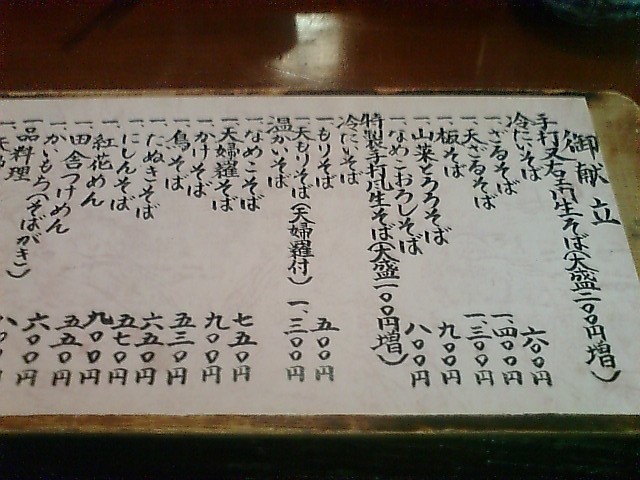 御献立
手打文右エ門生そば(大盛二〇〇円増)
冷たいそば
一、ざるそば 六〇〇円
一、天ざるそば 一、四〇〇円
一、板そば 一、三〇〇円
一、山菜とろろそば 九〇〇円
一、なめこおろしそば 八〇〇円
特製手打生そば(大盛一〇〇円増)
冷たいそば
一、もりそば 五〇〇円
一、天もりそば(天婦羅付) 一、三〇〇円
温かいそば
一、なめこそば 七五〇円
一、天婦羅そば 九〇〇円
一、かけそば 五三〇円
一、鳥そば 六五〇円
一、たぬきそば 五七〇円
一、にしんそば 九〇〇円
一、紅花めん 五五〇円
一、田舎つけめん 六〇〇円
一、かいもち(そばがき) 八〇〇円
一品料理